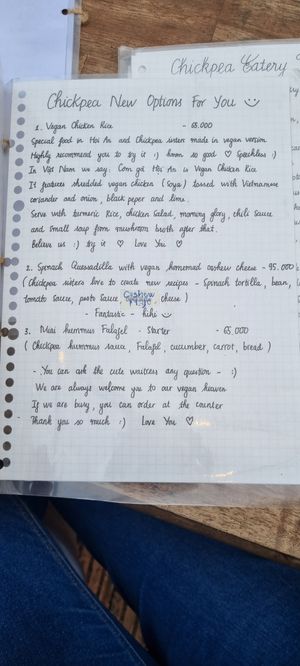 Chickpea Eatery
Chickpea New Options For You
1. Vegan Chicken Rice - 65.000
Special food in Hoi An and Chickpea sisters made in vegan version
Highly recommend you to try it :) hmm so good ♡ Speechless :)
In Việt Nam we say: Cơm gà Hội An is Vegan Chicken Rice
It features shredded vegan chicken (Soya) tossed with Vietnamese
coriander and onion, black peper and lime.
Serve with turmeric Rice, chicken Salad, morning glory, chili sauce
and small soup from mushroom broth after that.
Believe us :) try it ♡ Love You ♡
2. Spinach Quessadilla with vegan homemad cashew cheese - 95.000
(Chickpea sisters love to create new recipes - Spinach tortilla, bean,
tomato sauce, pesto sauce, Cashew Mayo cheese)
- Fantastic - hihi
3. Mini hummus Falafel - Starter - 65.000
(Chickpea hummus sauce, Falafel, cucumber, carrot, bread)
- You can ask the cute waitress any question - :)
We are always welcome you to our vegan heaven
If we are busy, you can order at the counter
Thank you so much :) Love You ♡